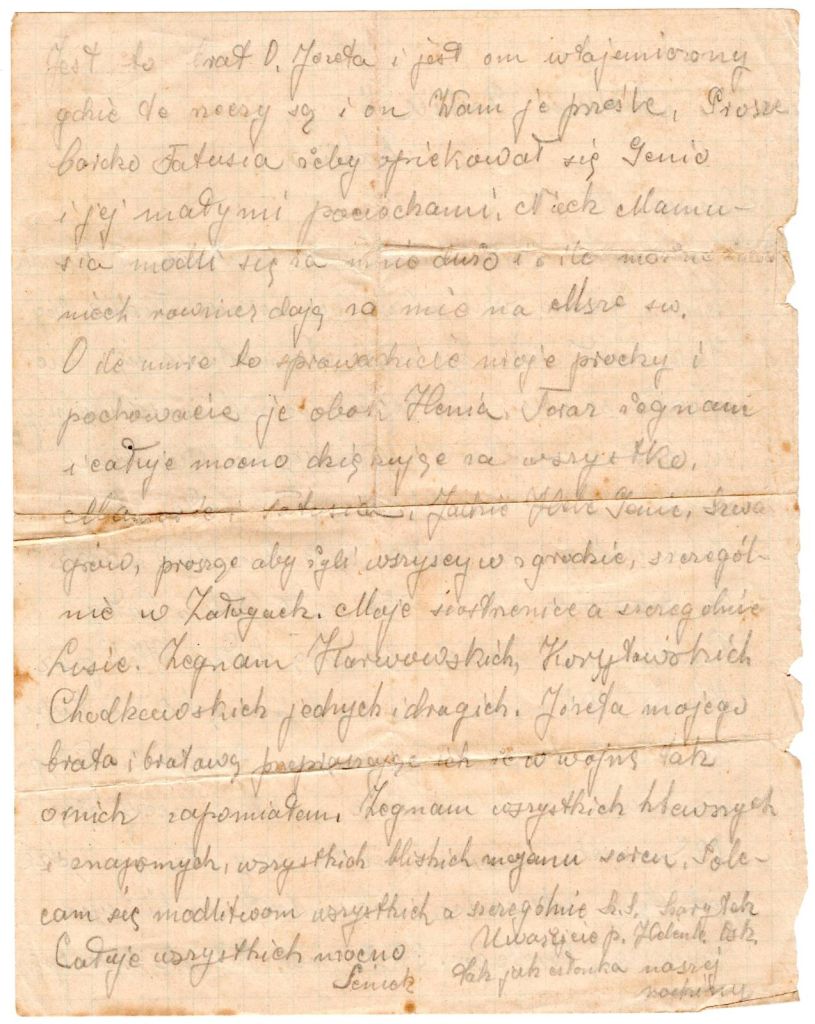 Jest to brat O. Józefa i jest om wtajemiczony
gdzie te rzeczy są i on Wam je prześle, Prosze
bardzo Tatusia żeby opiekował się Genio
i jej małymi pociechami. Niech Mamu-
sia modli się za mnie dużo i o ile można
niech rownież dają za mie na Msze św.
O ile umre to sprowadzicie moje prochy i
pochowacie je obok Henia. Teraz żegnam
i całuje mocno dziękuję za wszystko.
i Tatusia, Genie, szwa-
grów, proszge aby żyli wszyscy w zgrodzie, szczegól-
nie w Załogach. Moje siostrzenice a szczególnie
Lusie. Żegnam Karwowskich, Korytowskich
Chodkowskich jednych i drugich. Józefa mojego
brata i bratową przepraszając ich że w wojnę tak
o nich zapomiałem. Żegnam wszystkich krewnych
i znajomych, wszystkich bliskich mojemu sercu. Pole-
cam się modlitwom wszystkich a szczególnie S.S. Szarytek
Całuje wszystkich mocno
Uważajcie p. Helenk.
tak jak członka naszej
rodziny